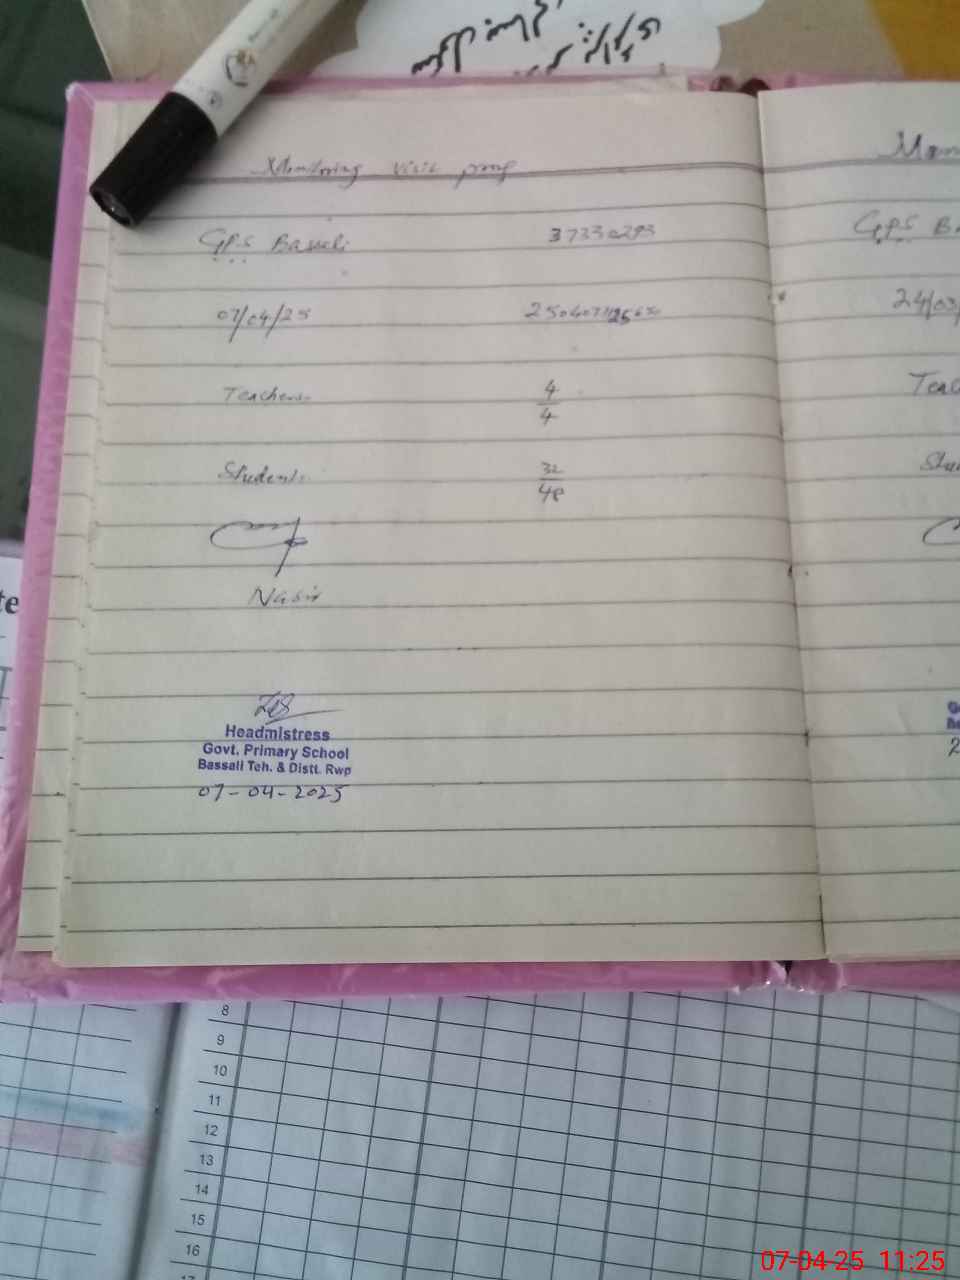 Monitoring visit prog
GPS Bassali 37330293
07/04/25
Teachers 4/4
Students 32/48
Nasir
Headmistress
Govt. Primary School
Bassali Teh. & Distt. Rwp
07-04-2025
GPS
24/03/
8
9
10
11
12
13
14
15
16
07-04-25 11:25